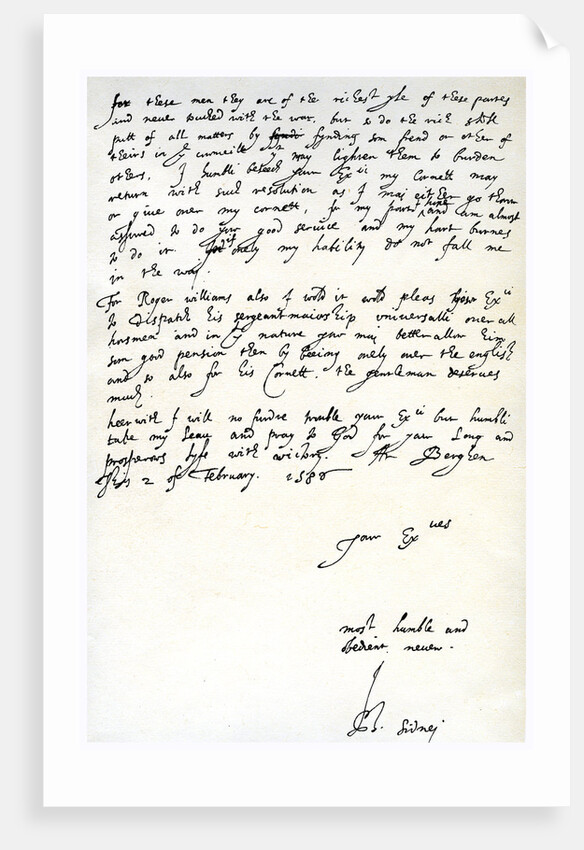 for these men they are of the richest yle of these partes
and never touched with the war, but so do the rich still
putt of all matters by fynding som frend or other of
theirs in yᵉ cunceill yᵗ may lighten them to burden
others. I humbli beseech your Exᶜⁱⁱ my Cornett may
return with such resolution as I mai either go thorow
or give over my cornett, for my horse and am almost
assured to do your good service and my hart burnes
to do it. only my hability do not fall me
in the wai.
For Roger williams also I wold it wold pleas yowr Exᶜⁱⁱ
to dispatch his sergeant maiorship universalli over all
horsmen and in yᵗ nature yow may better allow him
som good pension then by beeing onely over the english
and so also for his Cornett. the gentleman deserves
much.
heerwith I will no furdre trouble yowr Exᶜⁱⁱ but humbli
take my leave and pray to God for yowr long and
prosperous lyfe with victory. At Berghen
this 2 of February. 1586
yowr Exᶜⁱᵉˢ
most humble and
obedient neuew.
Ph. Sidnei